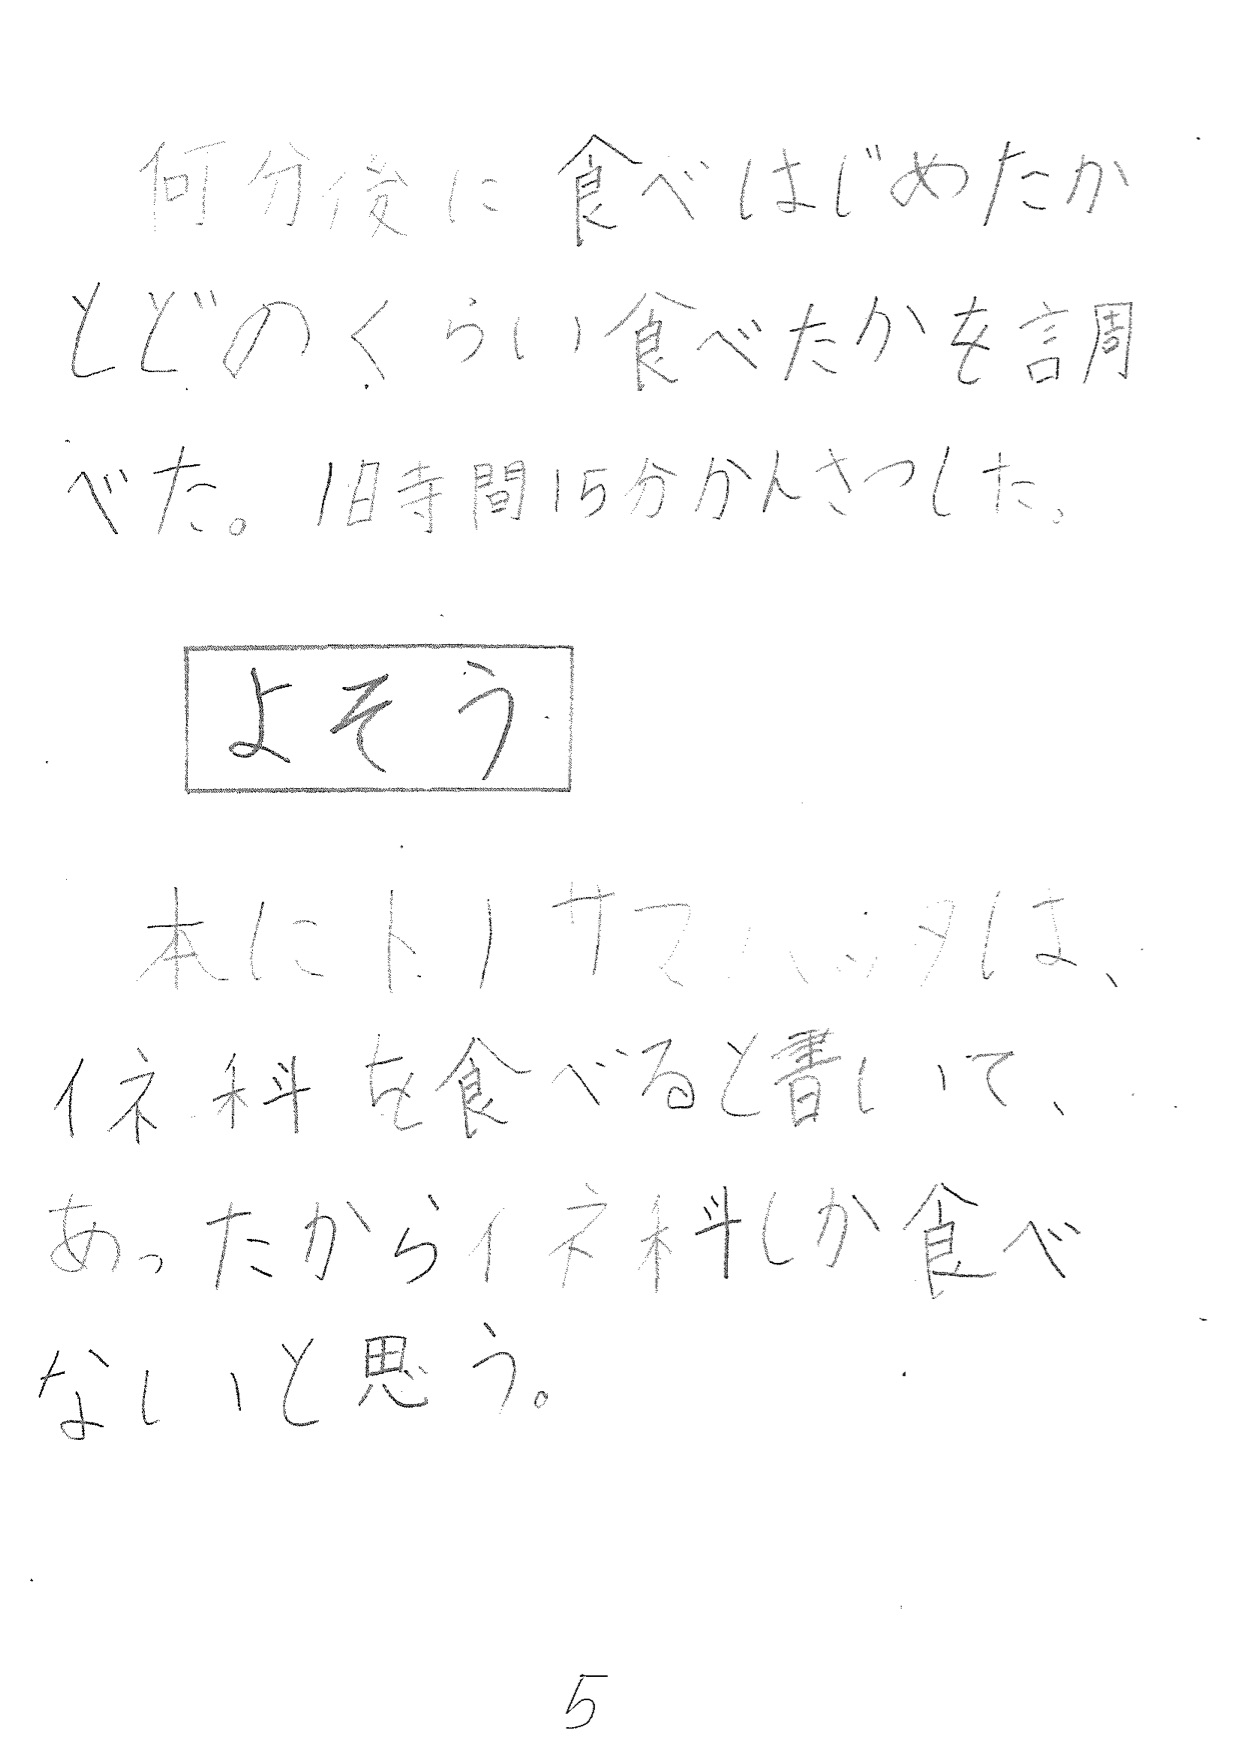 何分後に食べはじめたか
とどのくらい食べたかを調
べた。1日時間15分かんさつした。
よそう
本にトノサマバッタは、
イネ科を食べると書いて、
あったからイネ科しか食べ
ないと思う。
5